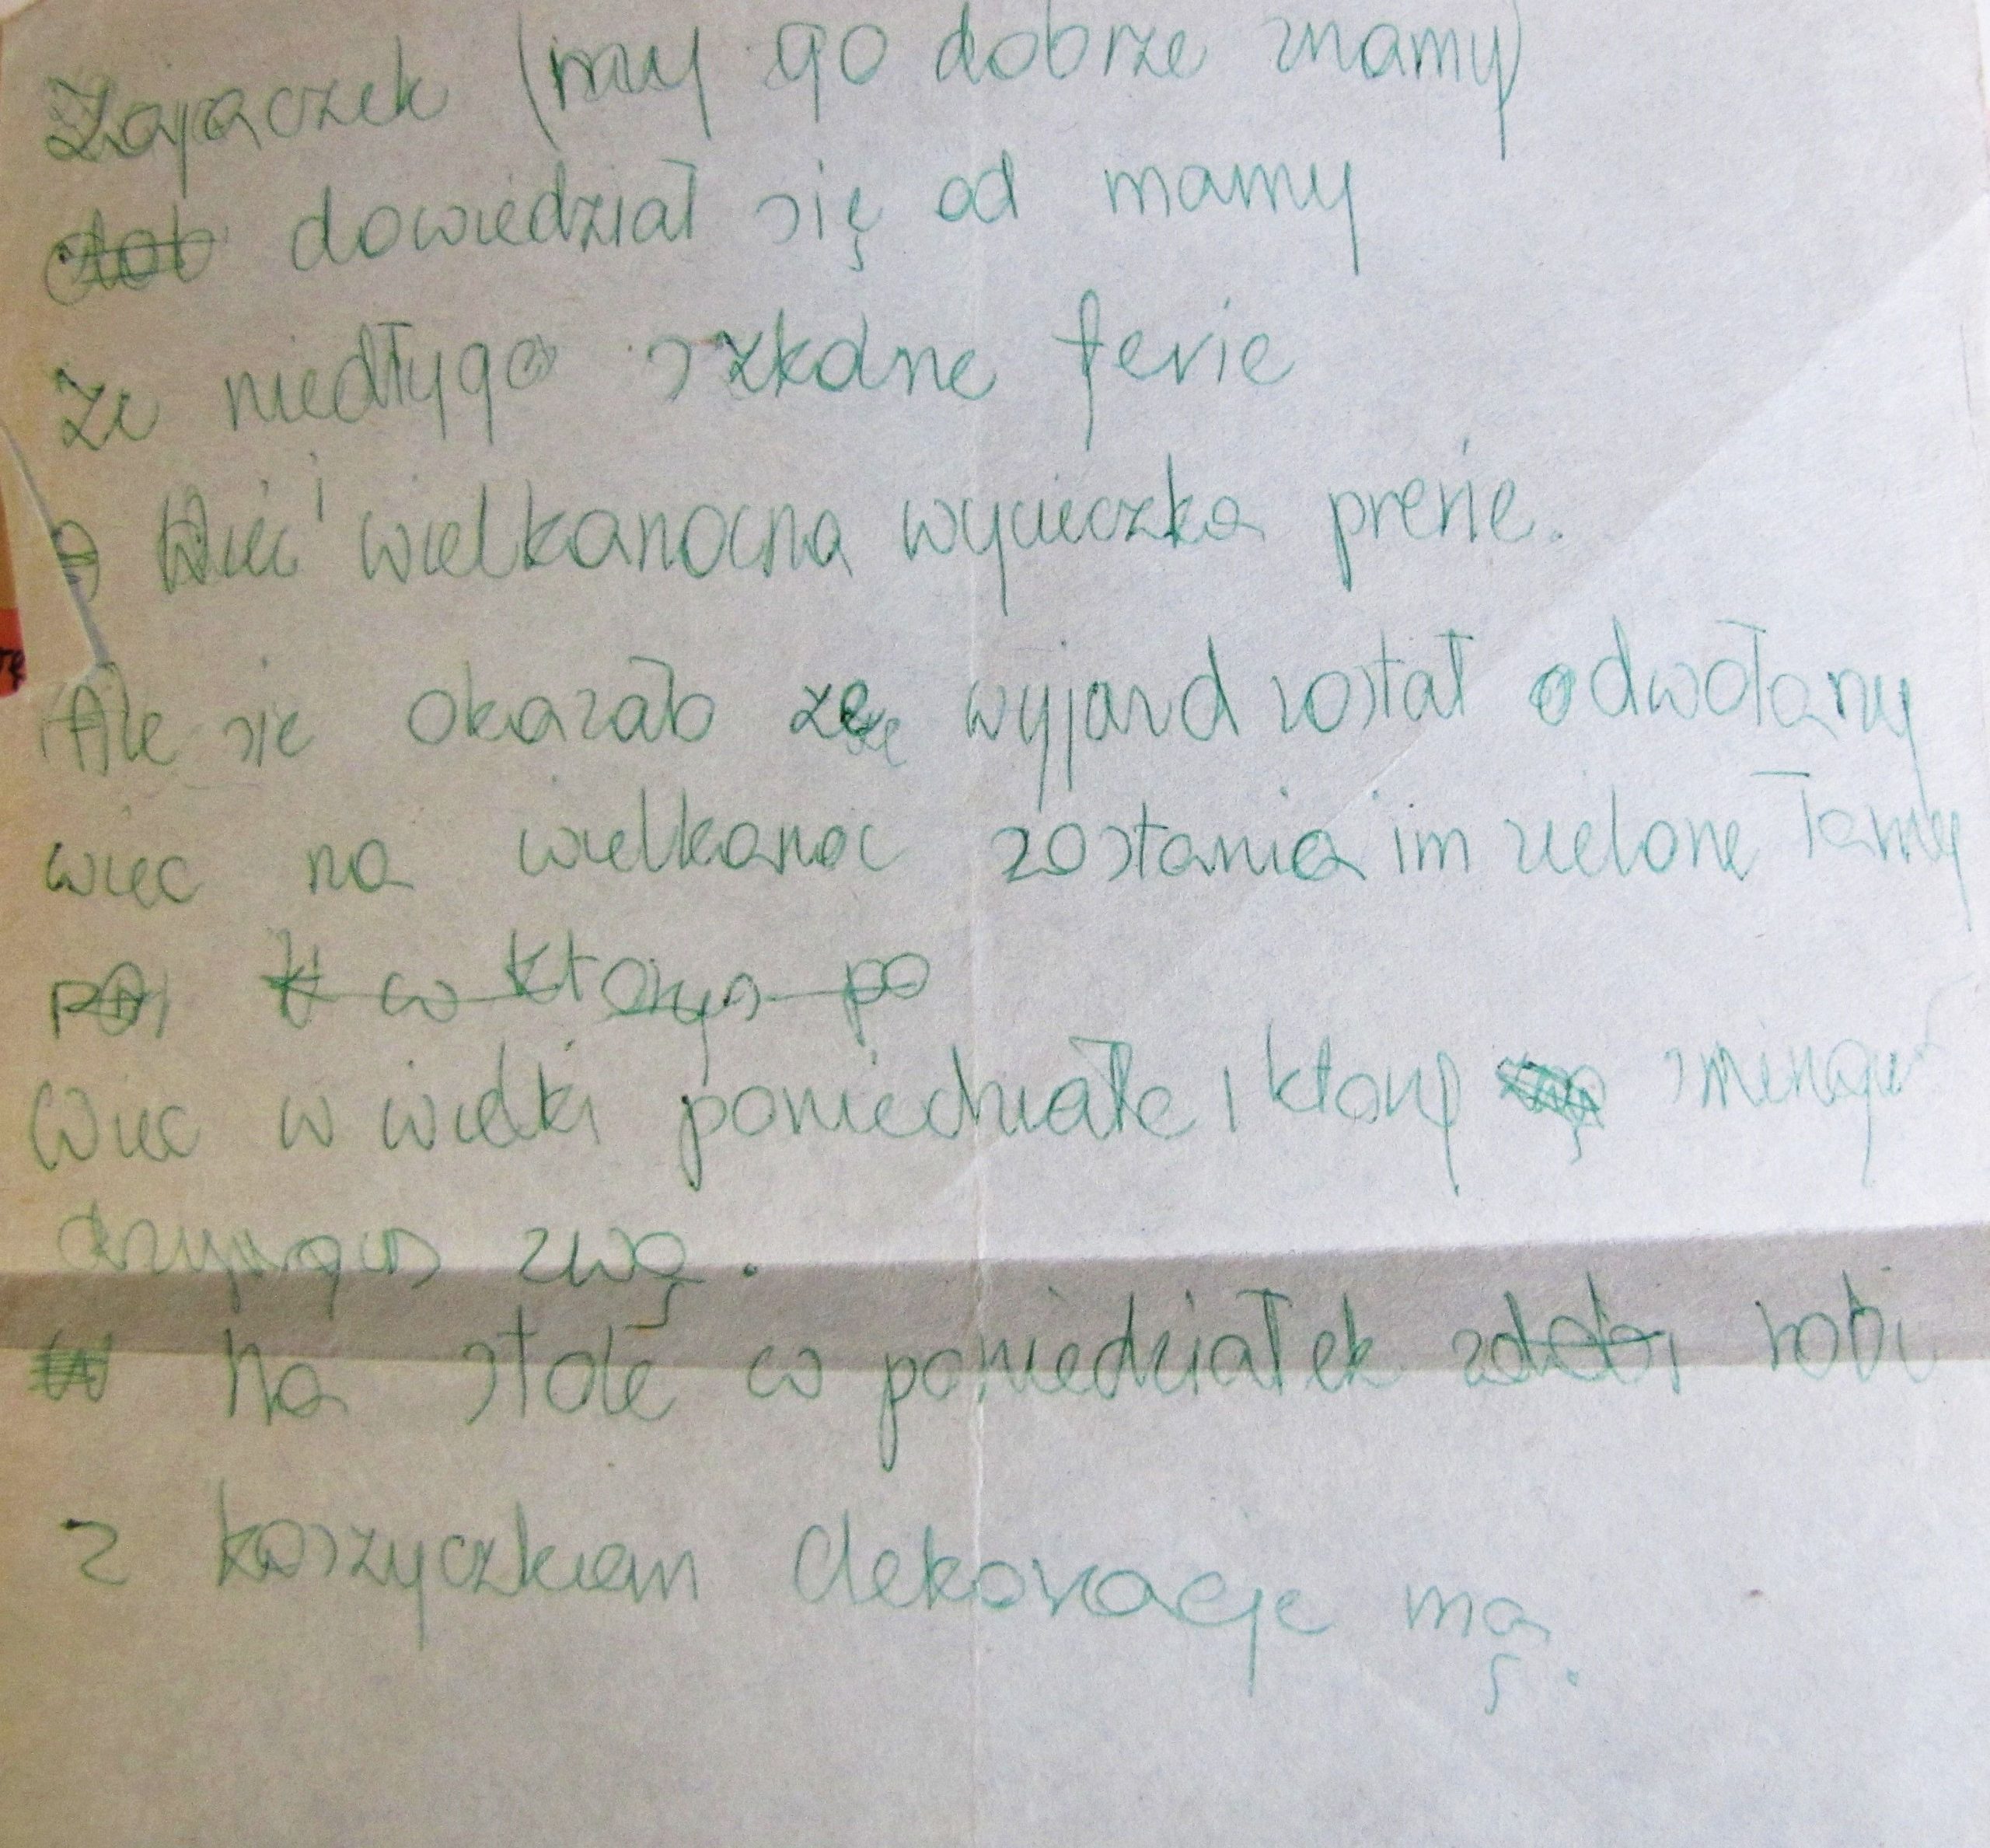 Zajączek (my go dobrze znamy)
dowiedział się od mamy
że niedłygo szkolne ferie
Więc i wielkanocna wycieczka prerie.
Ale sie okazało że wyjazd został odwołany
więc na wielkanoc zostania im zielone łamy
w który po
Więc w wielki poniedziałek, który śmingus
dzyngus zwą.
Na stole w poniedziałek zdobi robi
z koszyczkiem dekoracje mą.